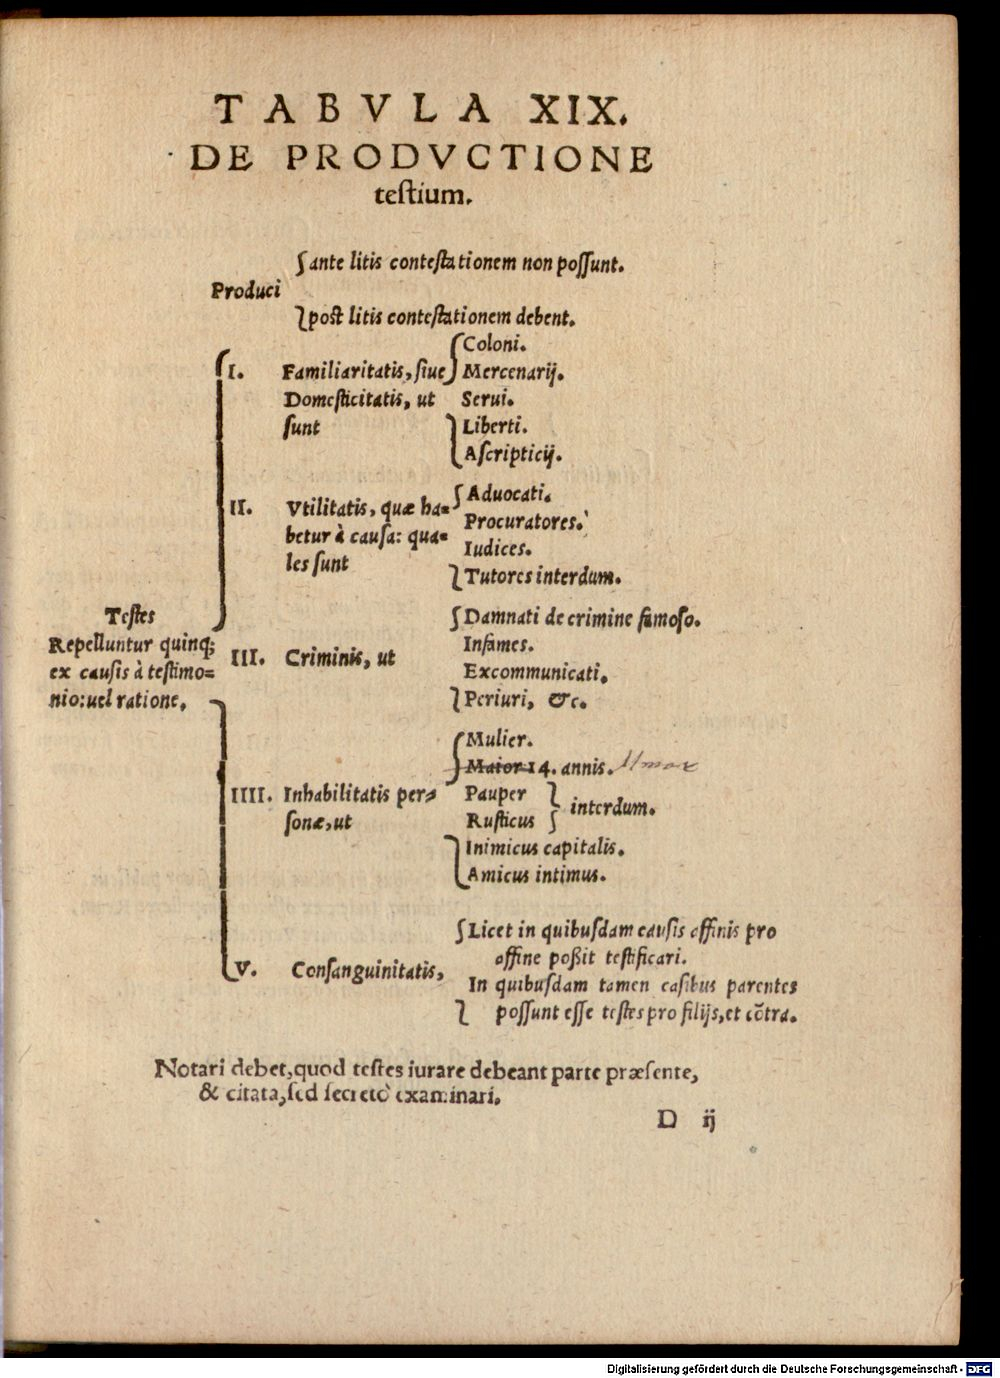 TABVLA XIX.
DE PRODVCTIONE
testium.
ante litis contestationem non possunt.
Produci
post litis contestationem debent.
I. Familiaritatis, siue
Domesticitatis, ut
sunt
Coloni.
Mercenarij.
Serui.
Liberti.
Ascripticij.
II. Vtilitatis, quæ ha=
betur à causa: qua=
les sunt
Aduocati.
Procuratores.
Iudices.
Tutores interdum.
Testes
Repelluntur quinq;
ex causis à testimo=
nio: uel ratione,
III. Criminis, ut
Damnati de crimine famoso.
Infames.
Excommunicati,
Periuri, &c.
IIII. Inhabilitatis per=
sonæ, ut
Mulier.
Maior 14. annis. Minor
Pauper
Rusticus
interdum.
Inimicus capitalis.
Amicus intimus.
V. Consanguinitatis,
Licet in quibusdam causis affinis pro
affine poßit testificari.
In quibusdam tamen casibus parentes
possunt esse testes pro filijs, et cōtra.
Notari debet, quod testes iurare debeant parte præsente,
& citata, sed secretò examinari.
D ij
Digitalisierung gefördert durch die Deutsche Forschungsgemeinschaft - DFG